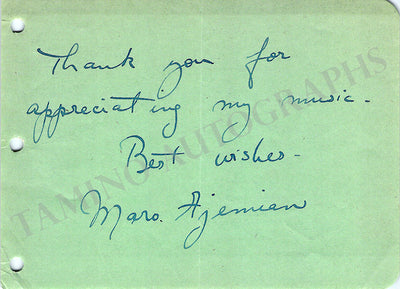 Thank you for
appreciating my music.
Best wishes.
Maro. Ajemian
TAMINO AUTOGRAPHS